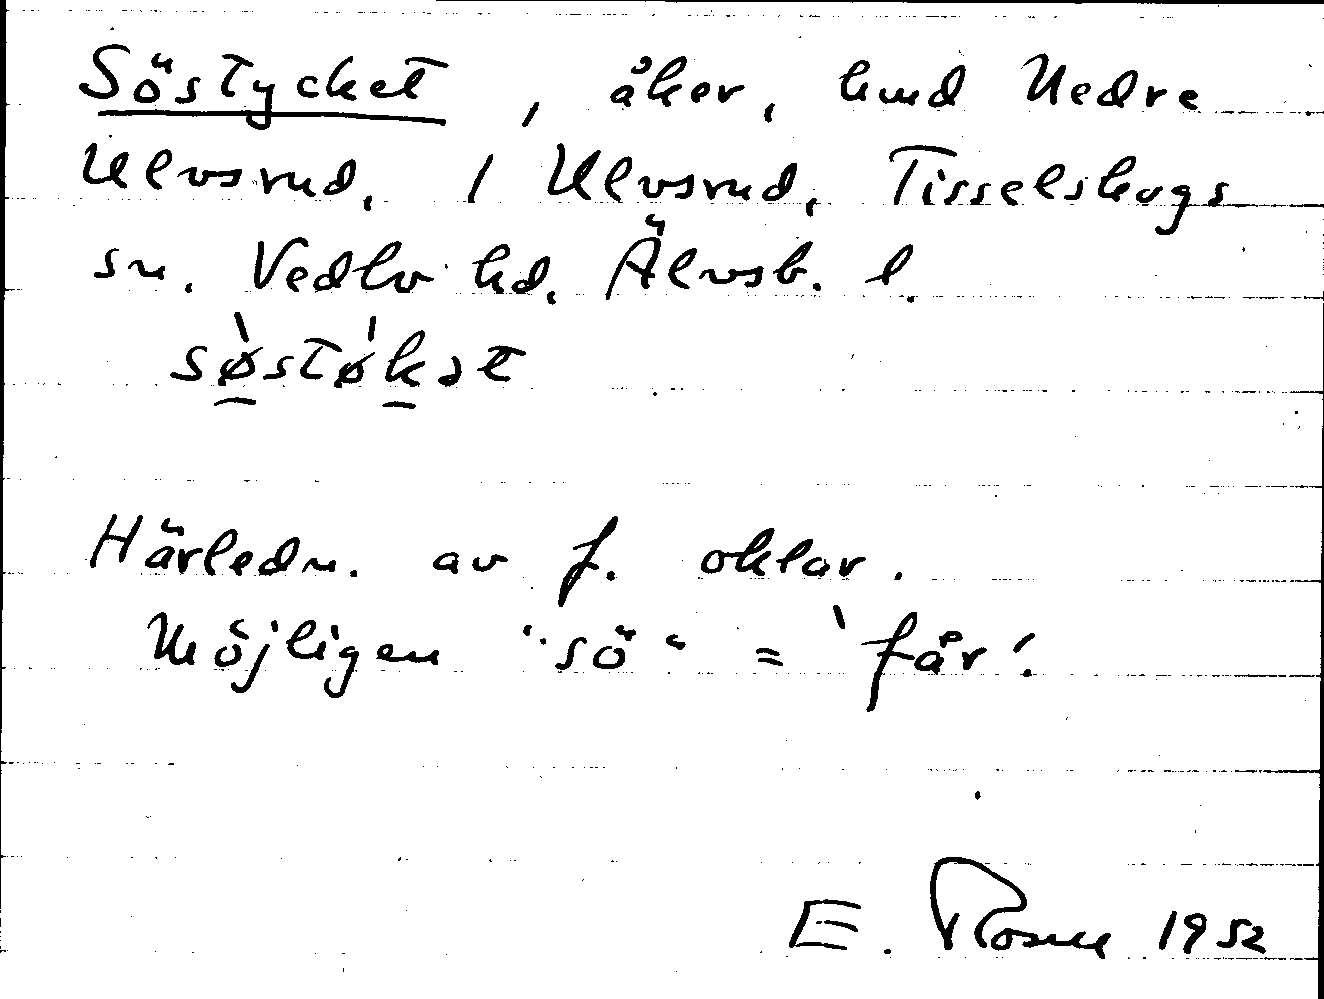 Söstycket, åker, hmd Nedre
Ulvsrud, 1 Ulvsrud, Tisselskogs
sn. Vedbo hd. Älvsb. l.
sø̀stǿkət
Härledn. av f. oklar.
Möjligen "sö" = 'får'.
E. 1952